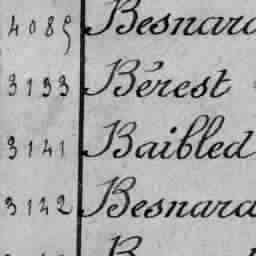 4085 Besnard
3133 Bérest
3141 Baibled
3142 Besnard